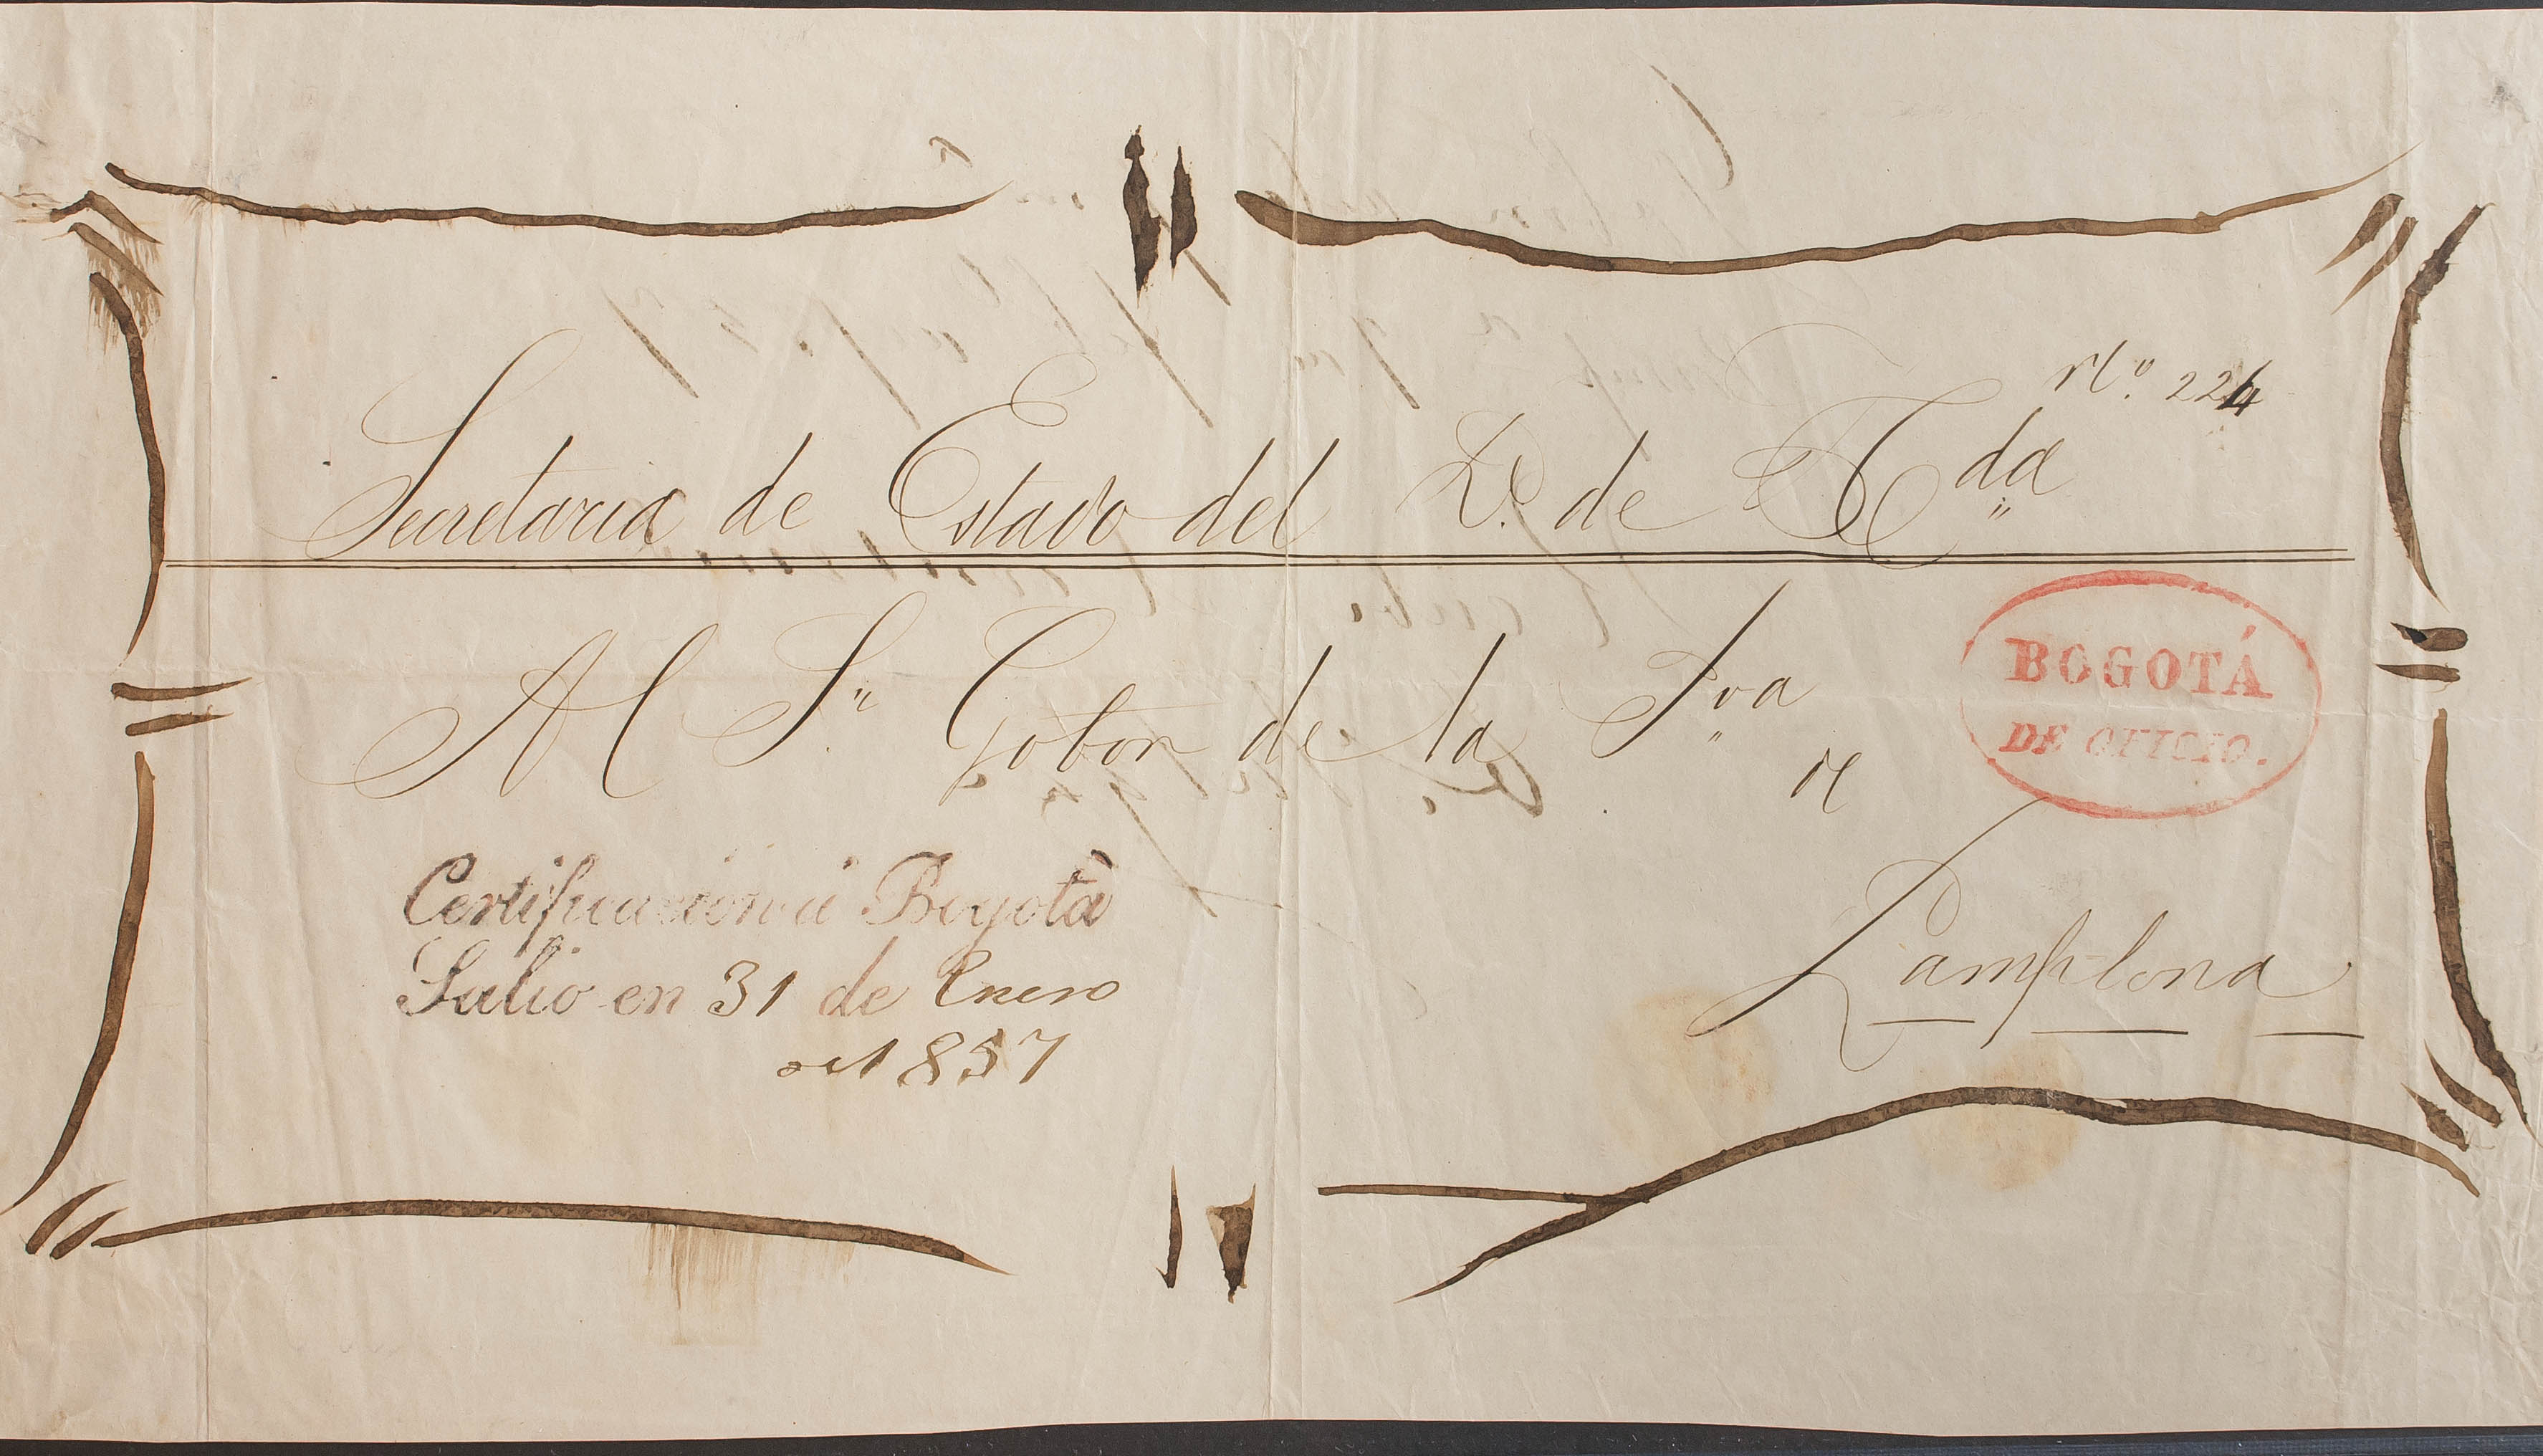 No. 224
Secretaria de Estado del D. de Hda
Al Sr. Gobor de la Pva
de
BOGOTÁ
DE OFICIO.
Pamplona
Certificacion á Bogotá
Salio en 31 de Enero
de 1857